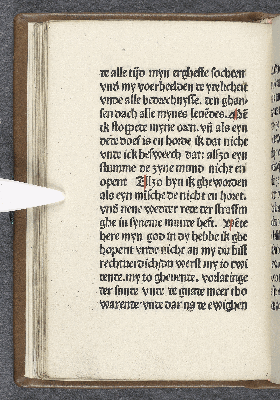 te alle tijd myn erghefte sochten
vnd myn voerbeelden te
vnde alle bedrechnysse. den ghan
sen dach alle mynes leuēdes. Mē
ik stoppede myne oren. vñ als eyn
de horde ik dat nicht
vnde ik besweech dat: alszo eyn
stumme de zyne mund nicht en
opent Alszo byn ik ghe worden
als eyn mische de nicht en horet.
vnd nene wedder rede der straffin
ghe in syneme munde heft. Wēte
here myn god in dy hebbe ik ghe
hopent vnde nicht an my du bist
rechtuerdich/du werst my to twi
dende. my to gheuende. vorlatinge
der sunde vnde de gnade meer tho
warende vnde dar na de ewighen